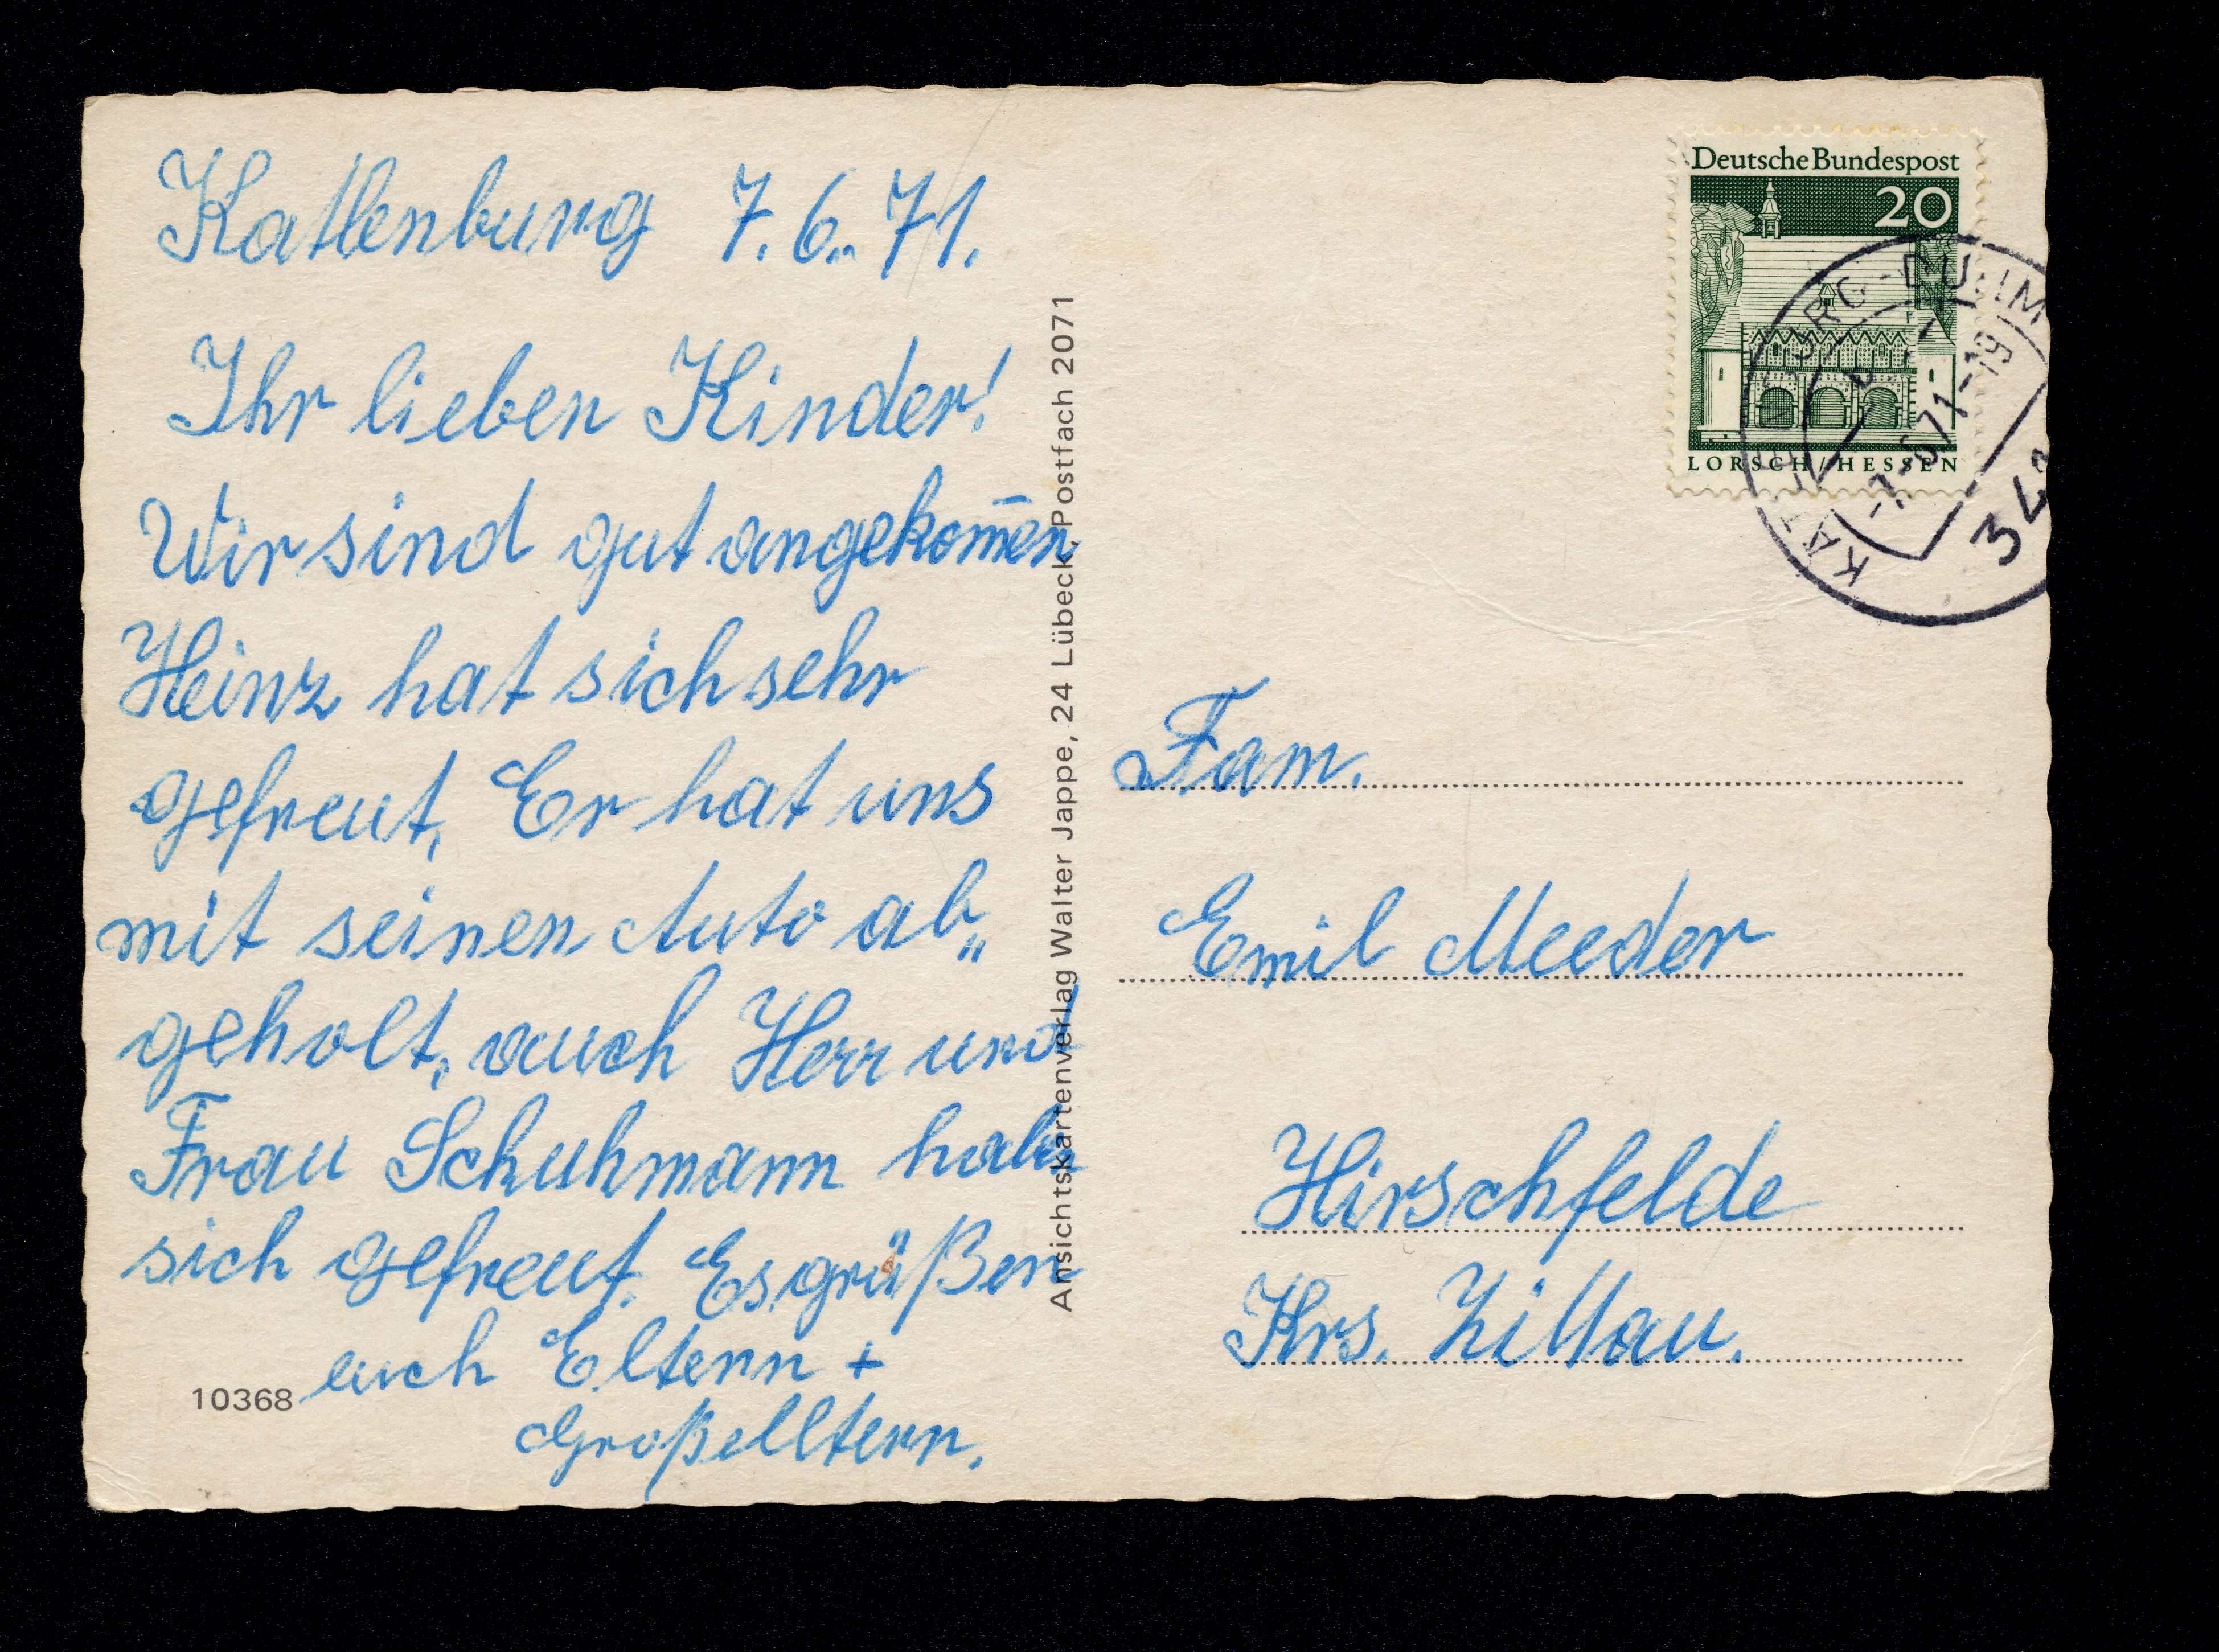 Katlenburg 7.6.71.
Ihr lieben Kinder!
Wir sind gut angekom̅en
Heinz hat sich sehr
gefreut, Er hat uns
mit seinen Auto ab„
geholt, auch Herr und
Frau Schuhmann haben
sich gefreut. Es grüßen
euch Eltern +
Großelltern.
10368
Ansichtskartenverlag Walter Jappe, 24 Lübeck, Postfach 2071
Deutsche Bundespost
20
LORSCH/HESSEN
-7.-6.71-19
Fam.
Emil Meeder
Hirschfelde
Krs. Zittau.